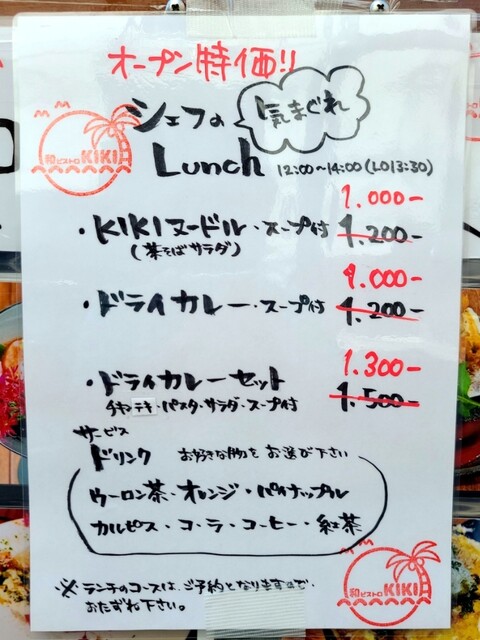 オープン特価!!
和ビストロ KIKI
シェフの 気まぐれ
Lunch 12:00〜14:00(LO13:30)
1.000-
・KIKIヌードル・スープ付 1.200-
(茶そばサラダ)
1.000-
・ドライカレー・スープ付 1.200-
1.300-
・ドライカレーセット 1.500-
チキテキ・パスタ・サラダ・スープ付
サービス
ドリンク お好きな物をお選び下さい
ウーロン茶・オレンジ・パイナップル
カルピス・コーラ・コーヒー・紅茶
※ランチのコースは、ご予約となりますので、
おたずね下さい。
和ビストロ KIKI